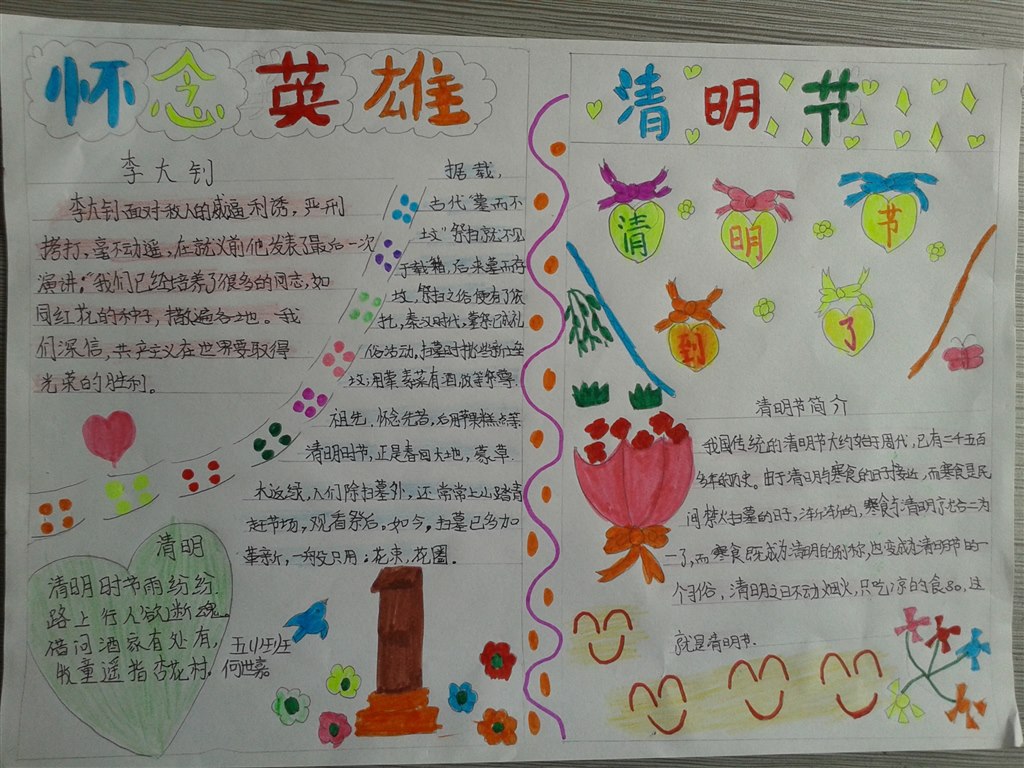 怀念英雄
李大钊
李大钊面对敌人的威逼利诱，严刑
拷打，毫不动遥，在就义前他发表了最后一次
演讲："我们已经培养了很多的同志，如
同红花的种子，撒遍各地。我
们深信，共产主义在世界要取得
光荣的胜利。
据载，
古代"墓而不
坟"祭扫就不见
于载籍，后来墓而存
坟，祭扫之俗便有了依
托，秦汉时代，墓祭已成礼
俗活动，扫墓时
祖先，怀念先者，
清明时节，正是春回大地，
木返绿，人们除扫墓外，还常常上山踏青
赶节场，观看祭后，如今，扫墓已多加
革新，一般只用：花束，花圈．
清明
清明时节雨纷纷．
路上行人欲断魂。
借问酒家有处有，
牧童遥指杏花村。
何世豪
清明节
清 明 节
到 了
清明节简介
我国传统的清明节大约始于周代，已有二千五百
多年的历史。由于清明与寒食的日子接近，而寒食是民
间禁火扫墓的日子，渐渐的，寒食与清明了合二为
一了，而寒食既成为清明的别称，也变成为清明节的一
个习俗，清明之日不动烟火，只吃凉的食品，这
就是清明节．